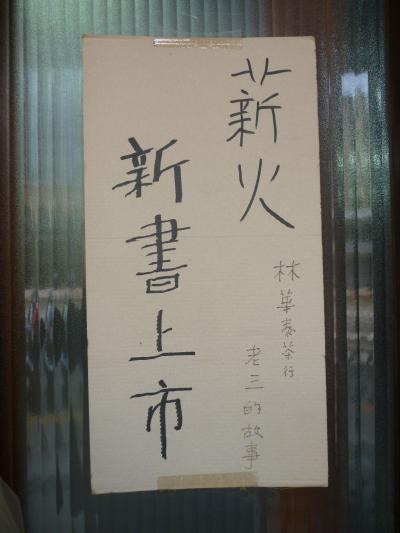 薪火
林華泰茶行
老三的故事
新書上市